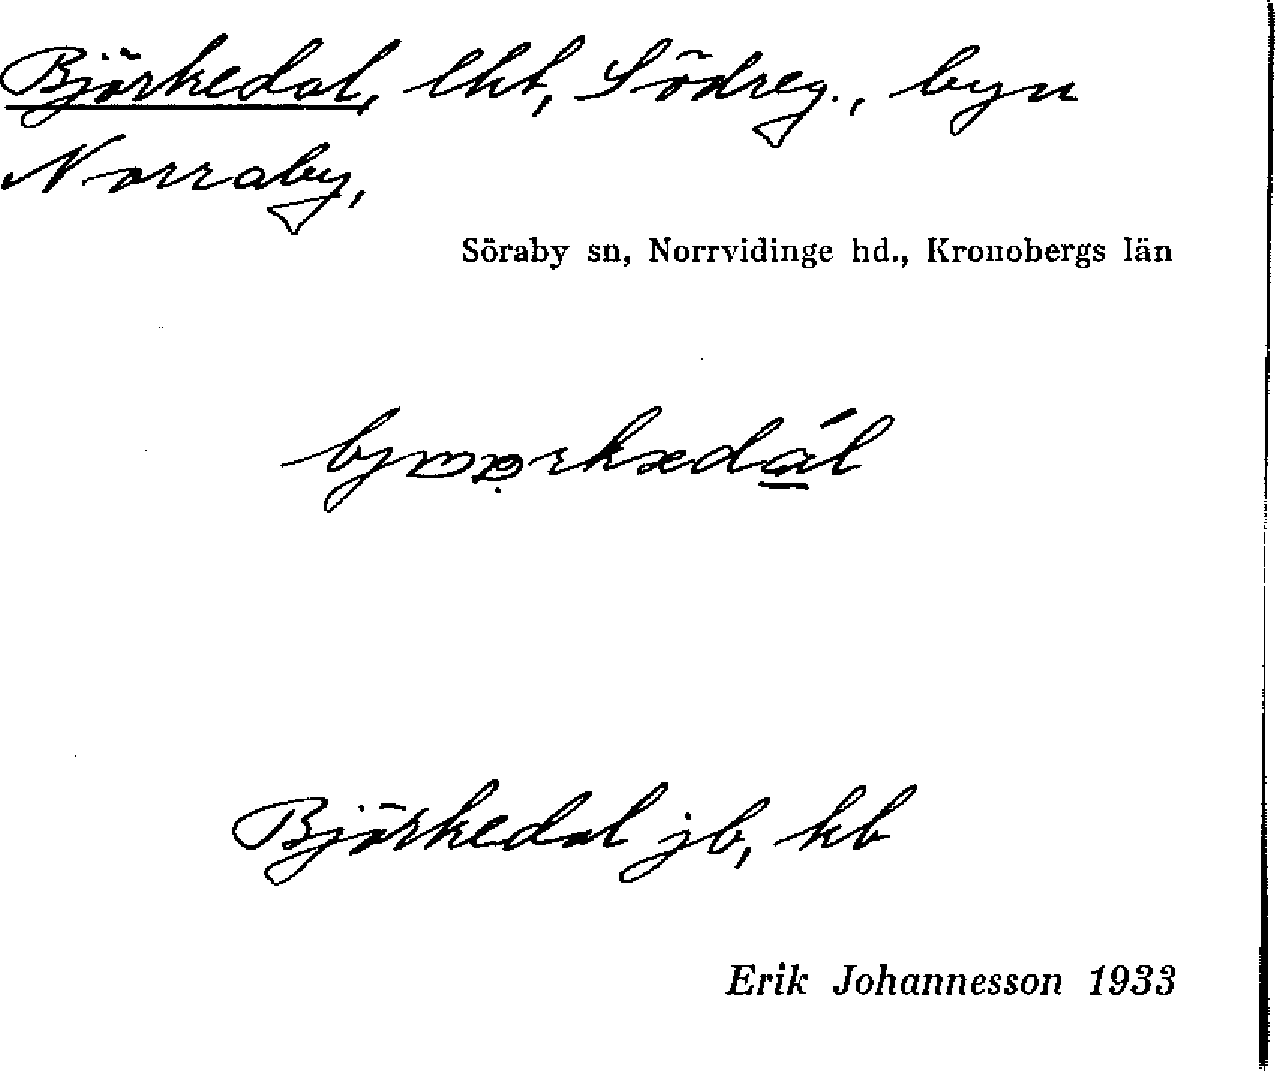 Björkedal, lht, Södreg., byn
Norraby,
Söraby sn, Norrvidinge hd., Kronobergs län
Björkedal jb, kb
Erik Johannesson 1933